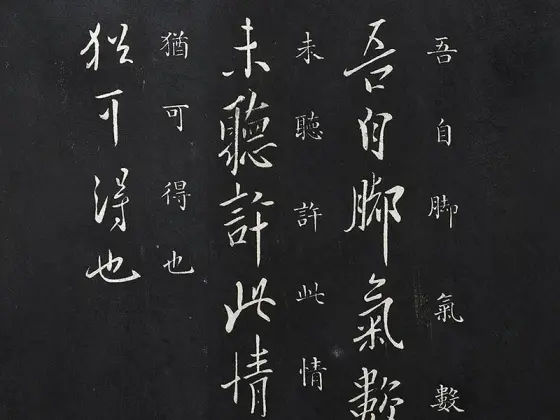 吾自脚氣數
吾自脚氣數
未聽許此情
未聽許此情
猶可得也
猶可得也